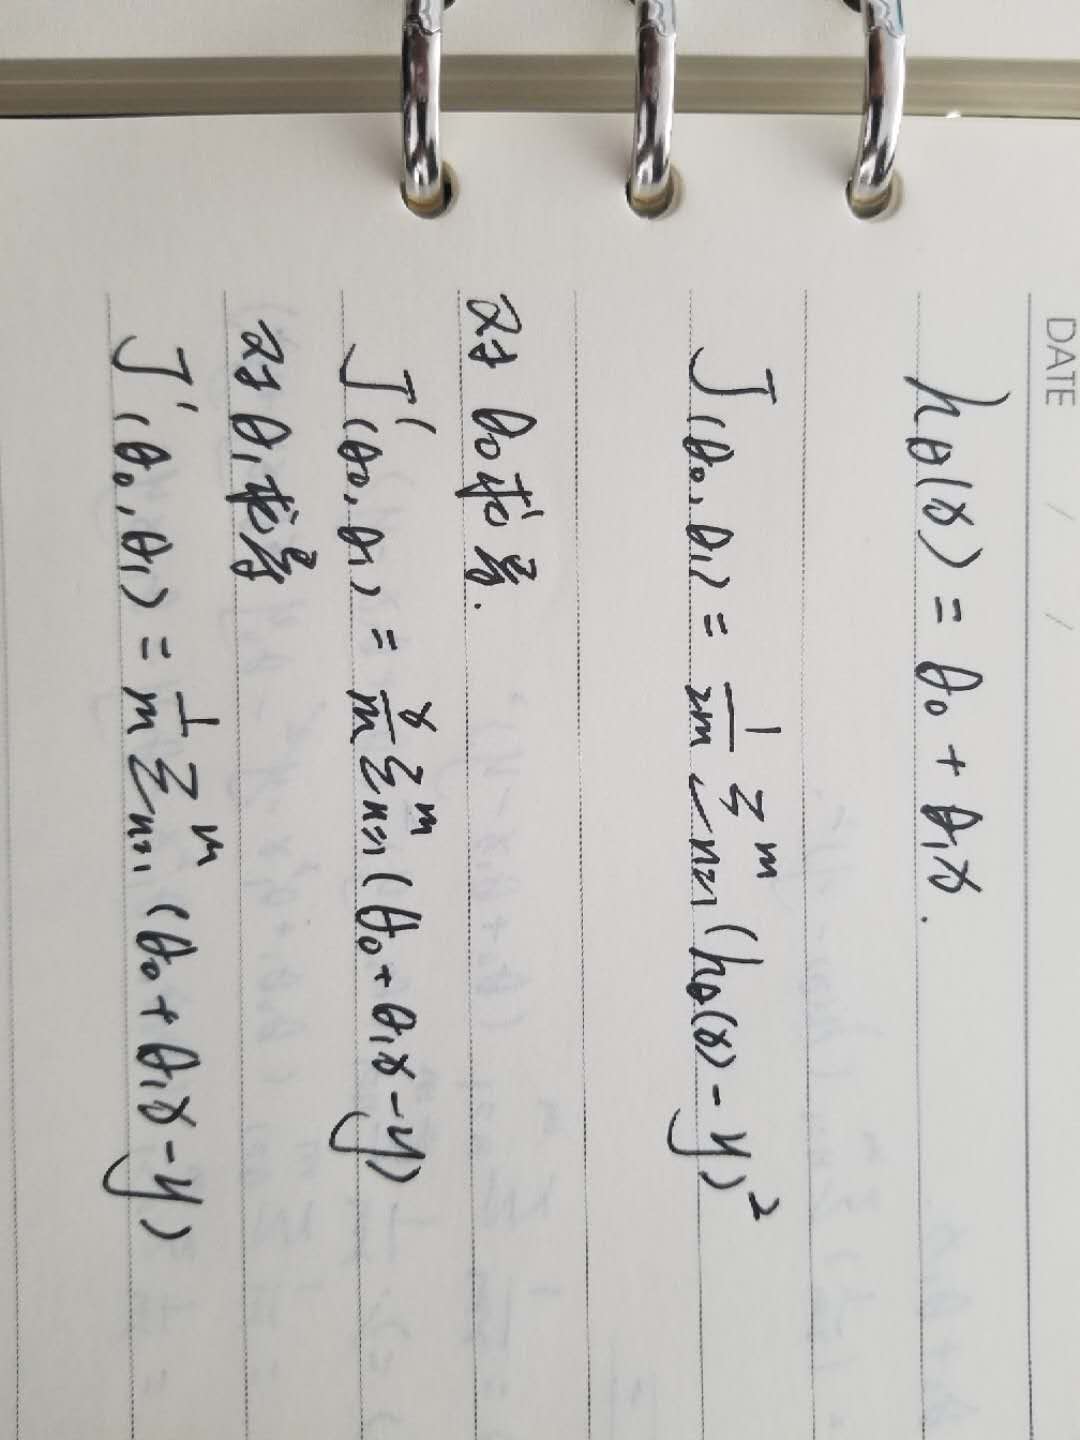 DATE / /
hθ(x) = θ₀ + θ₁x.
J(θ₀, θ₁) = 1/2m Σⁿ⁼¹ᵐ (hθ(x) - y)²
对 θ₀ 求导.
J'(θ₀, θ₁) = x/m Σₙ₌₁ᵐ (θ₀ + θ₁x - y)
对 θ₁ 求导
J'(θ₀, θ₁) = 1/m Σₙ₌₁ᵐ (θ₀ + θ₁x - y)